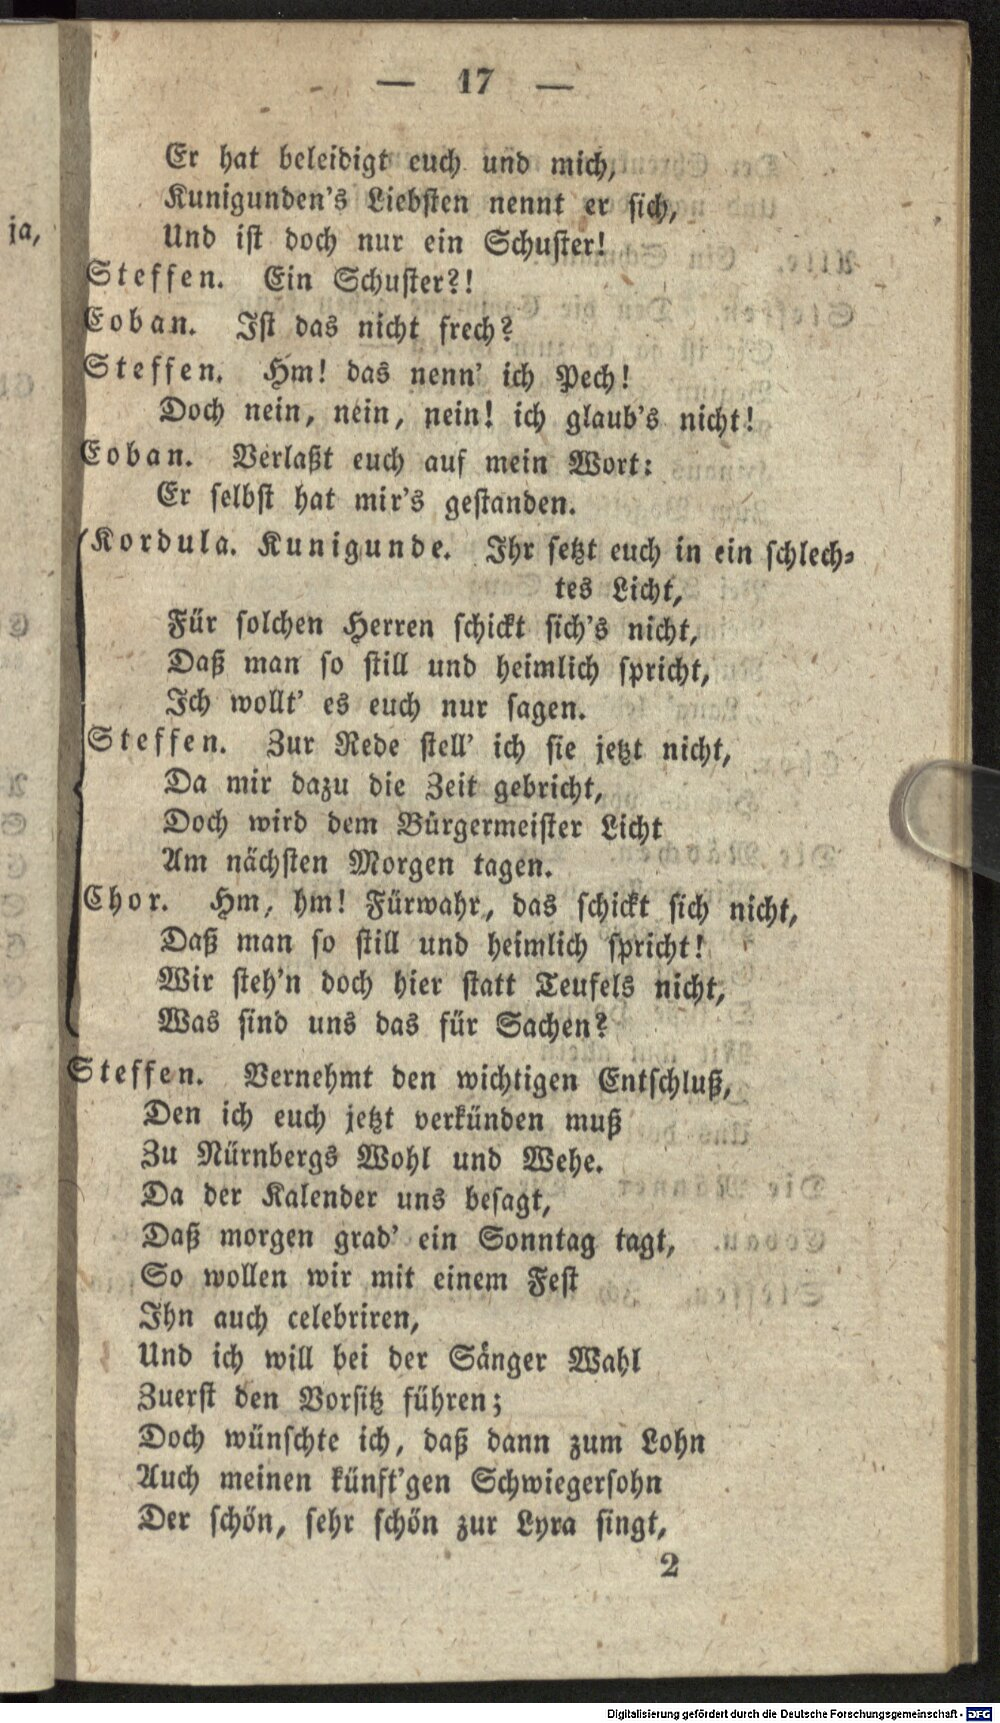 — 17 —
Er hat beleidigt euch und mich,
Kunigunden's Liebsten nennt er sich,
ja,
Und ist doch nur ein Schuster!
Steffen. Ein Schuster?!
Eoban. Ist das nicht frech?
Steffen. Hm! das nenn' ich Pech!
Doch nein, nein, nein! ich glaub's nicht!
Eoban. Verlaßt euch auf mein Wort:
Er selbst hat mir's gestanden.
Kordula. Kunigunde. Ihr setzt euch in ein schlech-
tes Licht,
Für solchen Herren schickt sich's nicht,
Daß man so still und heimlich spricht,
Ich wollt' es euch nur sagen.
Steffen. Zur Rede stell' ich sie jetzt nicht,
Da mir dazu die Zeit gebricht,
Doch wird dem Bürgermeister Licht
Am nächsten Morgen tagen.
Chor. Hm, hm! Fürwahr, das schickt sich nicht,
Daß man so still und heimlich spricht!
Wir steh'n doch hier statt Teufels nicht,
Was sind uns das für Sachen?
Steffen. Vernehmt den wichtigen Entschluß,
Den ich euch jetzt verkünden muß
Zu Nürnbergs Wohl und Wehe.
Da der Kalender uns besagt,
Daß morgen grad' ein Sonntag tagt,
So wollen wir mit einem Fest
Ihn auch celebriren,
Und ich will bei der Sänger Wahl
Zuerst den Vorsitz führen;
Doch wünschte ich, daß dann zum Lohn
Auch meinen künft'gen Schwiegersohn
Der schön, sehr schön zur Lyra singt,
2
Digitalisierung gefördert durch die Deutsche Forschungsgemeinschaft - DFG